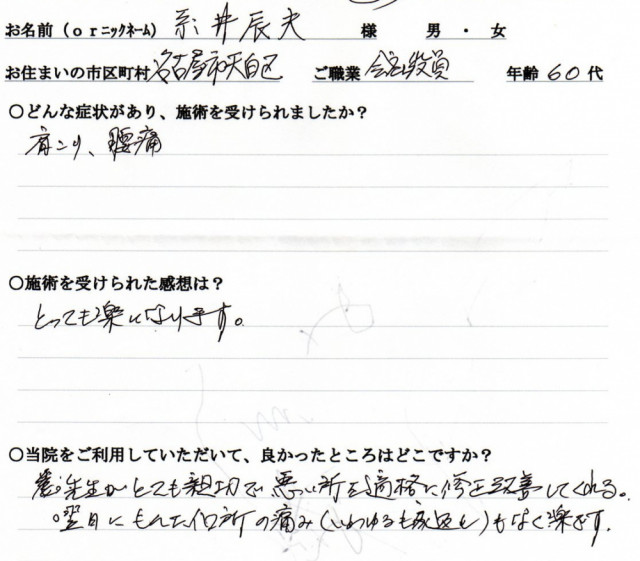 お名前（orニックネーム） 糸井辰夫 様 男・女
お住まいの市区町村 名古屋市天白区 ご職業 会社役員 年齢 60代
○どんな症状があり、施術を受けられましたか？
肩こり、腰痛
○施術を受けられた感想は？
とっても楽になります。
○当院をご利用していただいて、良かったところはどこですか？
先生がとても親切で悪い所を適格に修正改善してくれる。
翌日にもんだ個所の痛み（いわゆるもみ返し）もなく楽です。